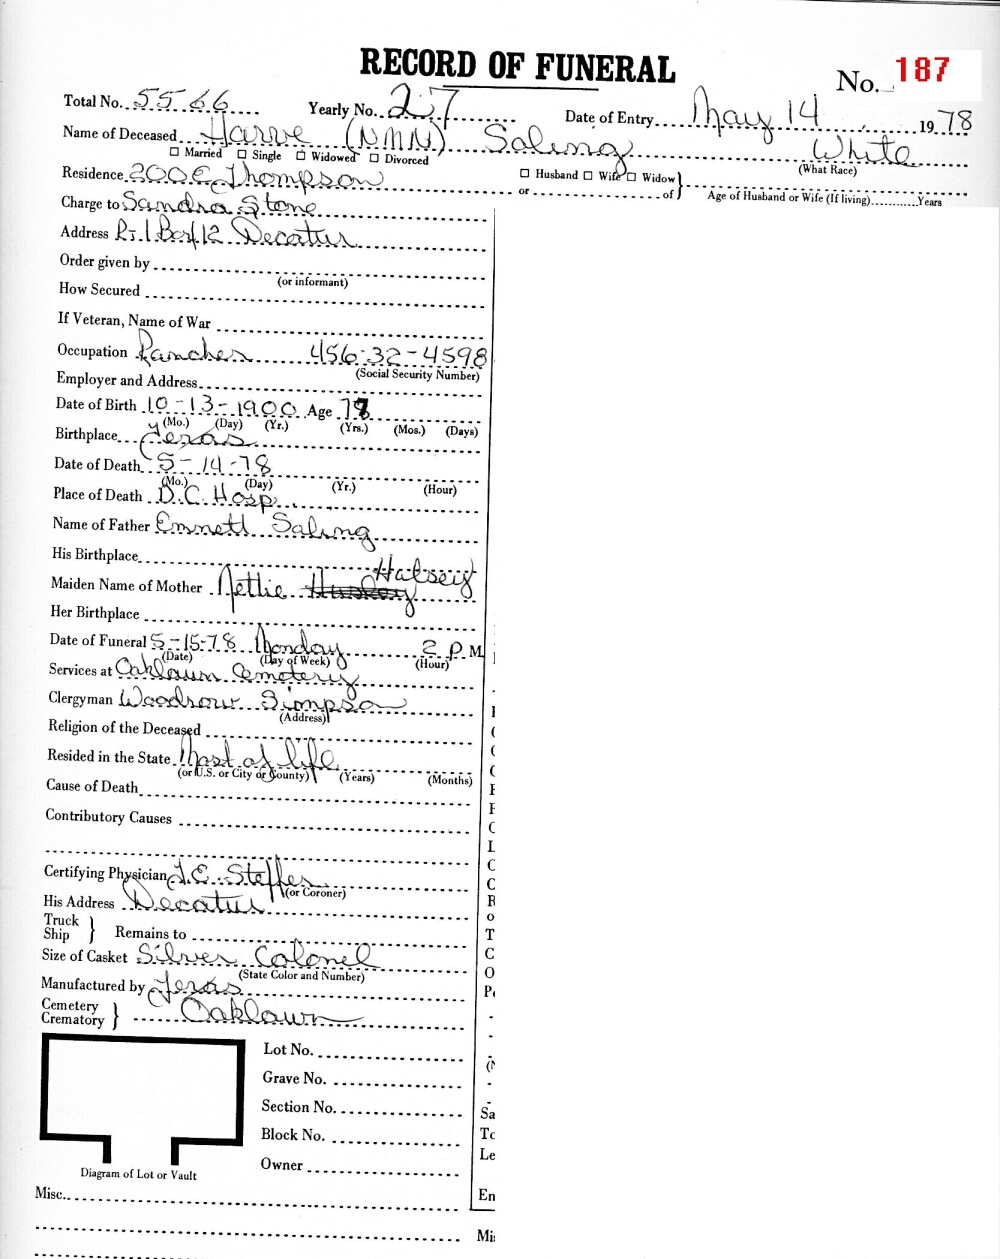 RECORD OF FUNERAL
No. 187
Total No. 5566 Yearly No. 27 Date of Entry May 14 1978
Name of Deceased Harve (NMN) Saling White
☐ Married ☐ Single ☐ Widowed ☐ Divorced (What Race)
Residence 200 E Thompson ☐ Husband ☐ Wife ☐ Widow
or of Age of Husband or Wife (If living) Years
Charge to Sandra Stone
Address Rt 1 Box 12 Decatur
Order given by
(or informant)
How Secured
If Veteran, Name of War
Occupation Rancher 456-32-4598
(Social Security Number)
Employer and Address
Date of Birth 10-13-1900 Age 78
(Mo.) (Day) (Yr.) (Yrs.) (Mos.) (Days)
Birthplace Texas
Date of Death 5-14-78
(Mo.) (Day) (Yr.) (Hour)
Place of Death D.C. Hosp.
Name of Father Emmett Saling
His Birthplace
Maiden Name of Mother Nettie Halsey
Her Birthplace
Date of Funeral 5-15-78 Monday 2 P M
(Date) (Day of Week) (Hour)
Services at Oaklawn Cemetery
Clergyman Woodrow Simpson
(Address)
Religion of the Deceased
Resided in the State Most of life
(or U.S. or City or County) (Years) (Months)
Cause of Death
Contributory Causes
Certifying Physician J.E. Steffes
(or Coroner)
His Address Decatur
Truck
Ship Remains to
Size of Casket Silver Colonel
(State Color and Number)
Manufactured by Texas
Cemetery
Crematory Oaklawn
Lot No.
Grave No.
Section No.
Block No.
Owner
Diagram of Lot or Vault
Misc.
Sa
Le
En
Mi